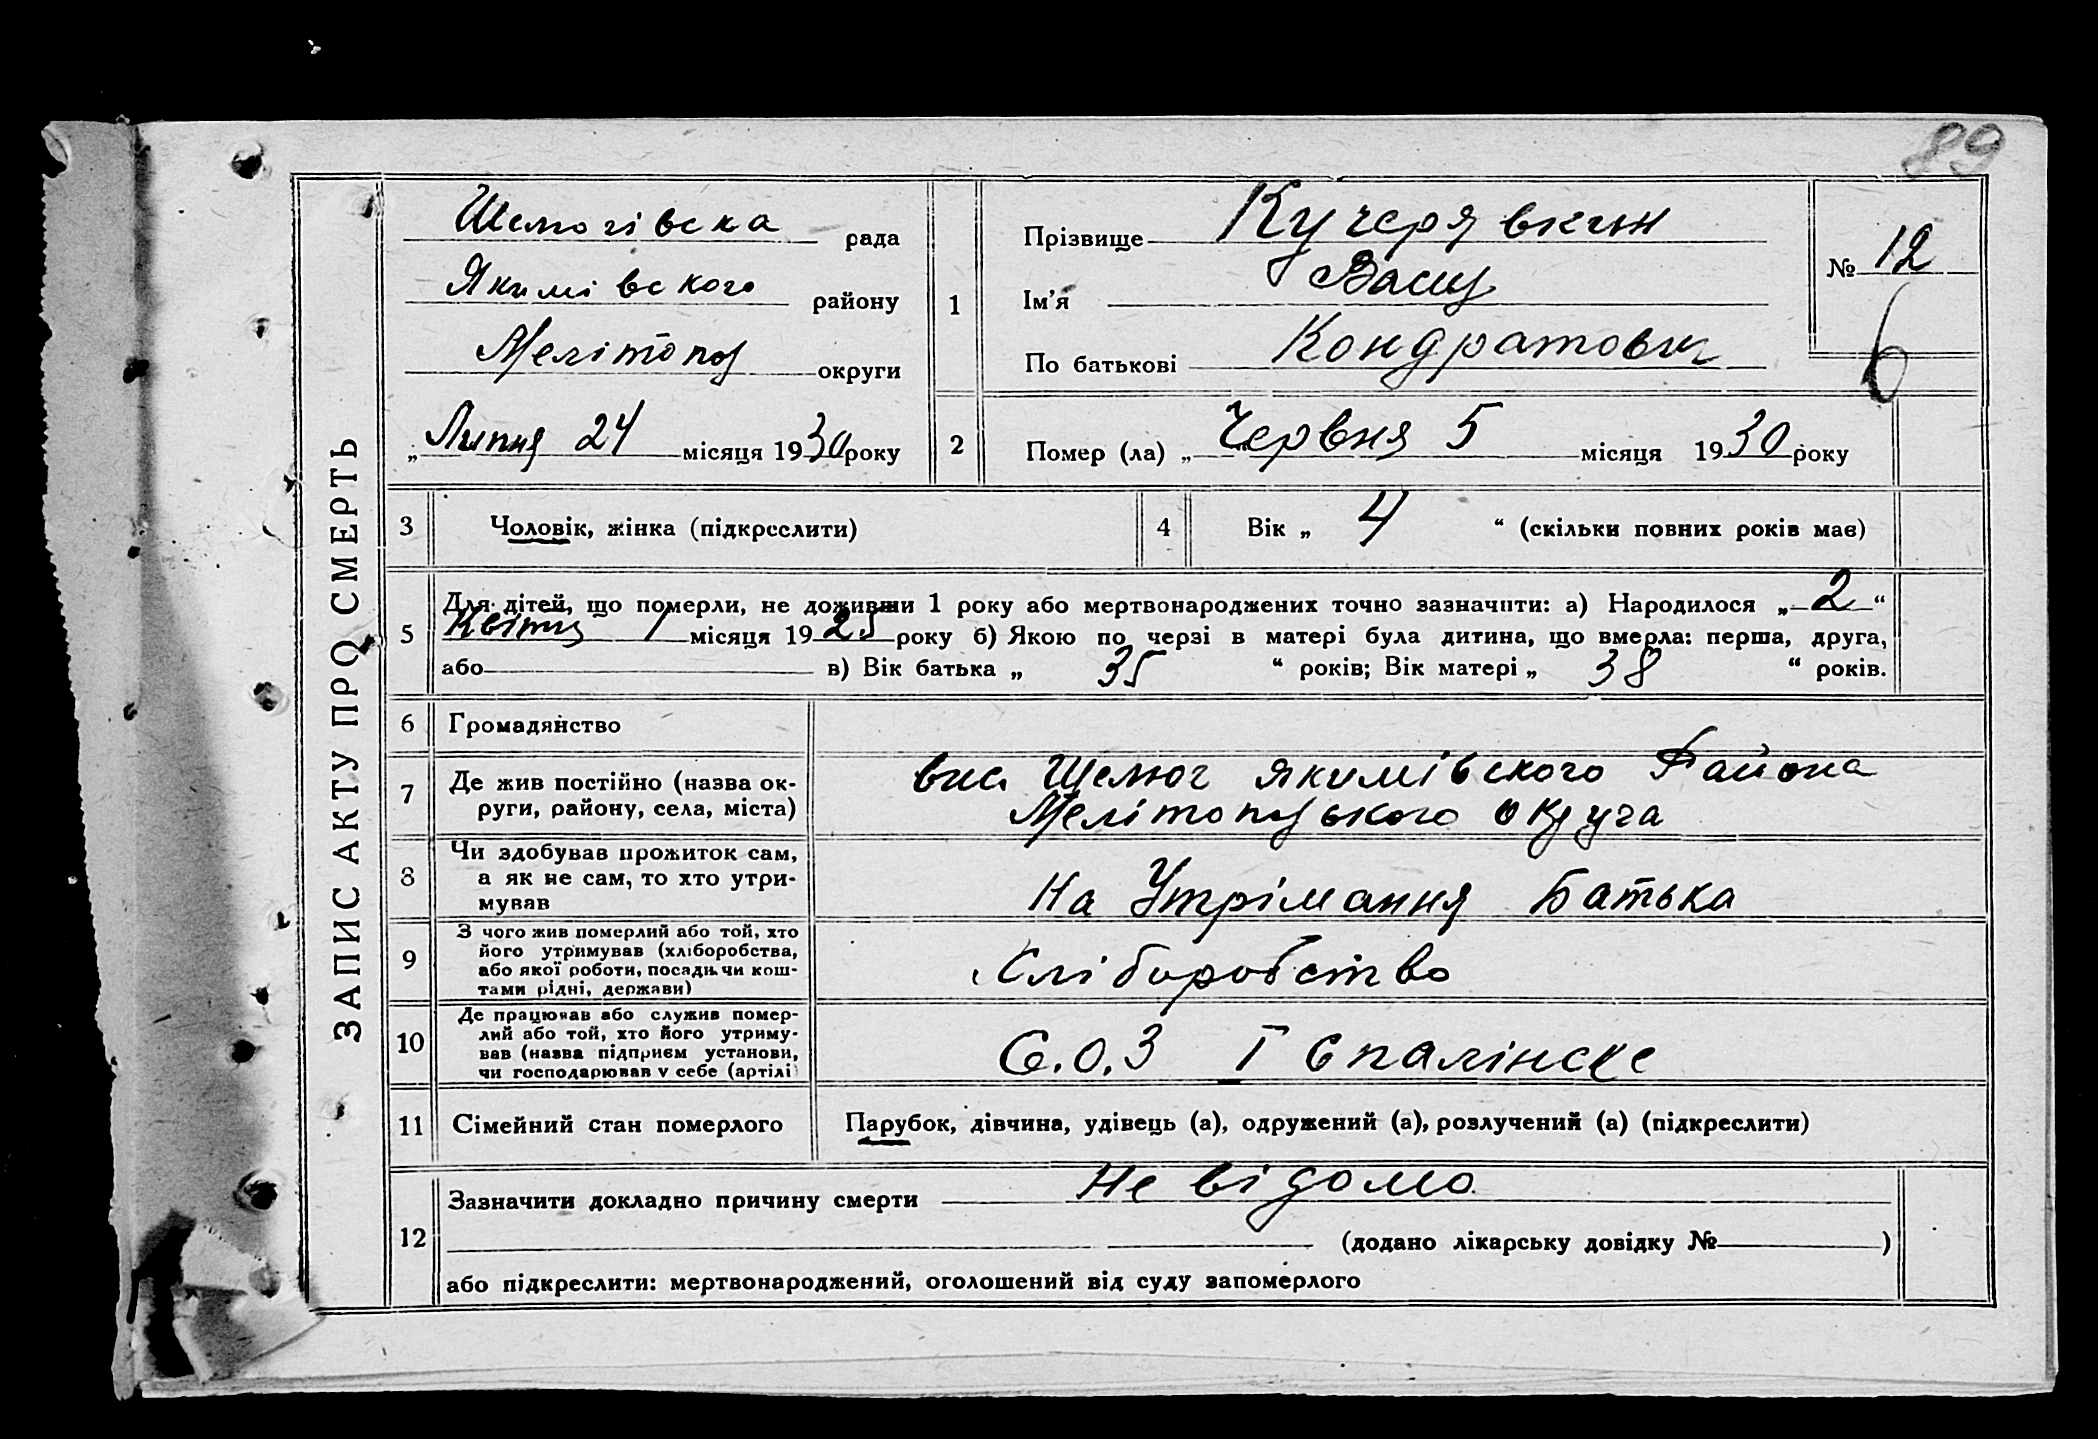 89
ЗАПИС АКТУ ПРО СМЕРТЬ
рада
Якимівского району
Мелітопол округи
„Липня 24 місяця 1930 року
1
Прізвище
Ім'я Васил
По батькові Кондратович
№ 12
6
2
Помер (ла) „ Червня 5 місяця 1930 року
3
Чоловік, жінка (підкреслити)
4
Вік „ 4 “ (скільки повних років має)
5
Для дітей, що померли, не доживши 1 року або мертвонароджених точно зазначити: а) Народилося „ 2 “
місяця 1925 року б) Якою по черзі в матері була дитина, що вмерла: перша, друга,
або в) Вік батька „ 35 “ років; Вік матері „ 38 “ років.
6
Громадянство
7
Де жив постійно (назва ок-
руги, району, села, міста)
вис. Щелюг якимівского Района
Мелітопольського округа
8
Чи здобував прожиток сам,
а як не сам, то хто утри-
мував
На Утрімання Батька
9
З чого жив померлий або той, хто
його утримував (хліборобства,
або якої роботи, посади чи кош-
тами рідні, держави)
Хліборобство
10
Де працював або служив помер-
лий або той, хто його утриму-
вав (назва підприєм установи,
чи господарював у себе (артілі)
С.О.З
11
Сімейний стан померлого
Парубок, дівчина, удівець (а), одружений (а), розлучений (а) (підкреслити)
12
Зазначити докладно причину смерти Не відомо
(додано лікарську довідку № )
або підкреслити: мертвонароджений, оголошений від суду запомерлого